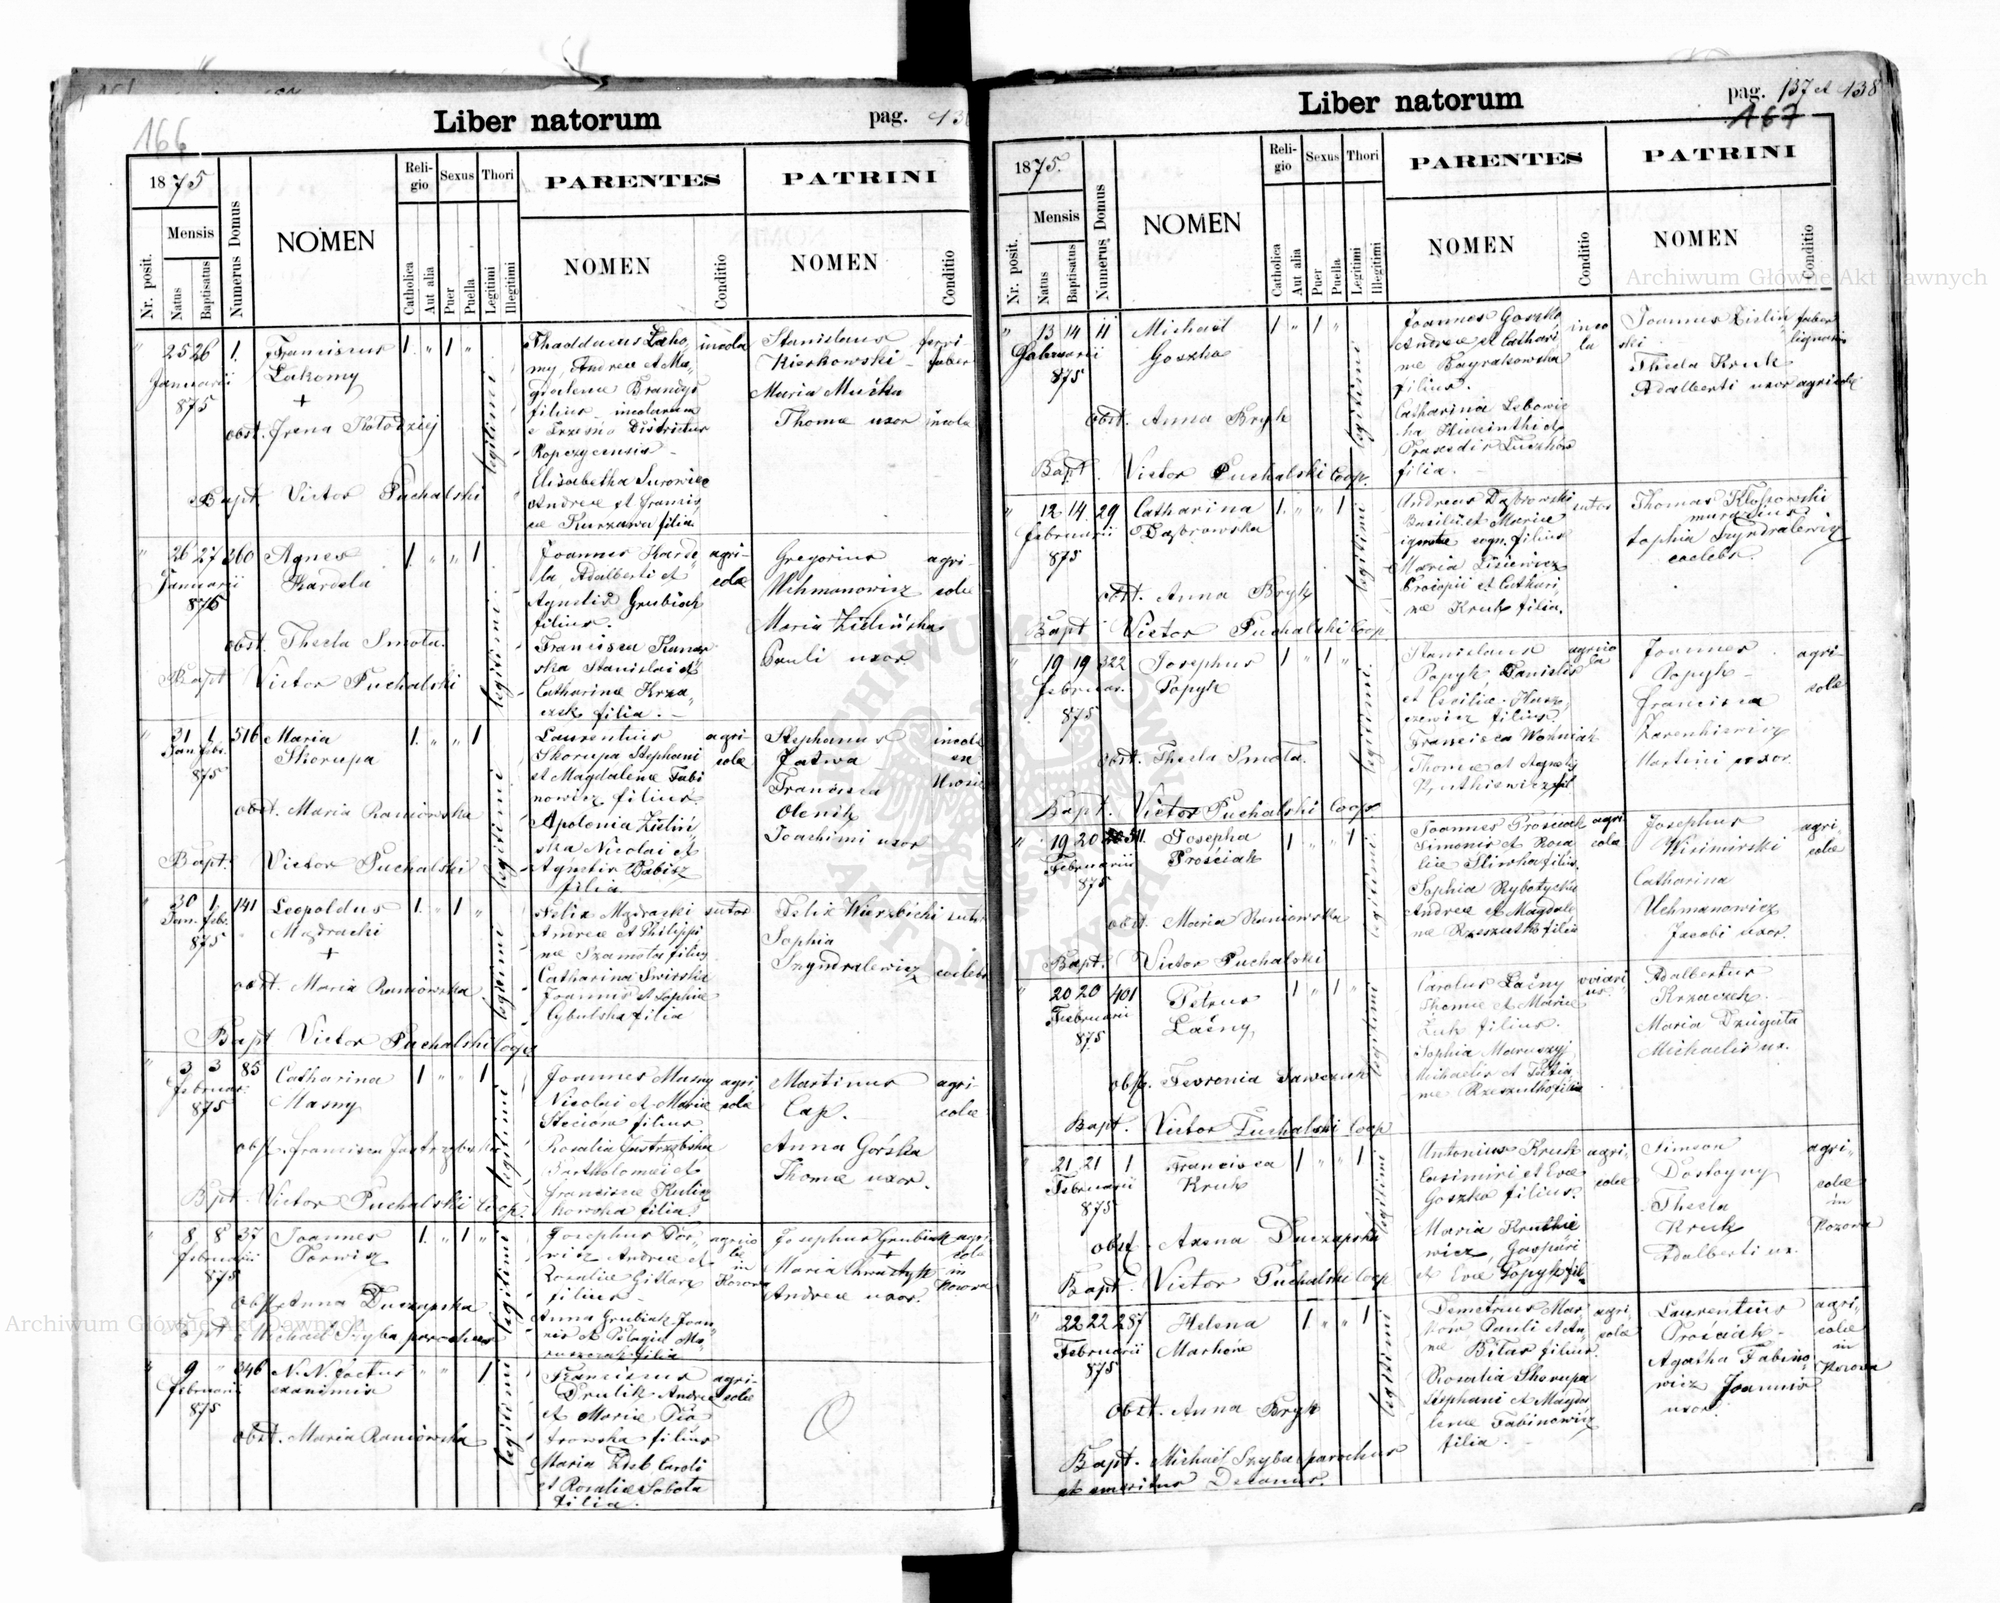 166
Liber natorum
pag.
1875
Nr. posit.
Mensis
Natus
Baptisatus
Numerus Domus
NOMEN
Religio
Catholica
Aut alia
Sexus
Puer
Puella
Thori
Legitimi
Illegitimi
PARENTES
NOMEN
Conditio
PATRINI
NOMEN
Conditio
25 26 1.
Januarii
875
Franciscus
Łakomy
+
obst. Irena Kołodziej
Bapt. Victor Puchalski
legitimi
Thaddaeus Łako
my, Andreae et Ma
gdalena Brandys
filius incolarum
Districtus
Ropczycensis
Elisabetha Surowiec
Andreae et Francis
cae Kurzawa filia
incola
Stanislaus
Kierkowski
Maria Muśka
Thomae uxor
ferri
faber
incola
26 27 260
Januarii
875
Agnes
Kardela
obst. Thecla Smola.
Bapt Victor Puchalski
legitimi
Joannes Karde
la, Adalberti et
Agnetis Grubiak
filius.
Francisca Kanar
ska Stanislai et
Catharinae Krza
czek filia.
agri-
colae
Gregorius
Uchmanowicz
Maria Zielińska
Pauli uxor.
agri-
colae
31 1. 516
Jan. febr.
875
Maria
Skorupa
obst. Maria Raniowska
Bapt. Victor Puchalski
legitimi
Laurentius
Skorupa Stephani
et Magdalenae Fabi
nowicz filius.
Apolonia Zieliń
ska Nicolai et
Agnetis Babisz
filia.
agri-
colae
Stephanus
Jatwa
Francisca
Olenik
Joachimi uxor
incolae
30 1. 141
Jan. febr.
875
Leopoldus
Mędracki
+
obst. Maria Raniowska
Bapt Victor Puchalski Coop.
legitimi
Felix Mędracki
Andreae et Philippi
nae Szamota filius
Catharina Swirska
Joannis et Sophiae
Cybulska filia
sutor
Felix Wierzbicki
Sophia
Szyndralewicz
sutor
caelebs
3 3 85
februar.
875
Catharina
Masny
obst. Francisca Jastrzębska
Bpt. Victor Puchalski Coop.
legitimi
Joannes Masny
Nicolai et Mariae
Steciora filius.
Rosalia Jastrzębska
Bartholomaei et
Franciscae Kulis
kowska filia
agri
colae
Martinus
Cap.
Anna Górska
Thomae uxor.
agri-
colae
8 8 37
februarii
875
Joannes
Porwisz
obst. Anna Duczapska
Bapt Michael Szyba parochus
legitimi
Josephus Por
wisz Andreae et
Rosaliae Gittarz
filius
Anna Grubiak Joan
nis et Pelagia
filia
agrico
lae
in
Kozowa
Josephus Grubiak
+
Maria Chwastyk
Andreae uxor.
agri
colae
in
Kozowa
9 346
februarii
875
N. N. foetus
exanimis
obst. Maria Raniowska
legitimi
Franciscus
Drulik Andreae
et Mariae Pio
trowska filius
Maria Zdeb Caroli
et Rosaliae Sobota
filia.
agri-
colae
Liber natorum
pag. 137 et 138
167
1875.
Nr. posit.
Mensis
Natus
Baptisatus
Numerus Domus
NOMEN
Religio
Catholica
Aut alia
Sexus
Puer
Puella
Thori
Legitimi
Illegitimi
PARENTES
NOMEN
Conditio
PATRINI
NOMEN
Conditio
13 14 11
Februarii
875
Michael
Goszko
obst. Anna Bryk
Bapt. Victor Puchalski Coop.
legitimi
Joannes Goszko
Andreae et Cathari
nae Bayrakowska
filius.
Catharina Lebowic
ka Hiacinthi et
Praxedis Luczków
filia.
inco
la
Joannes Zieliń
ski
Thecla Kruk
Adalberti uxor agricolae
faber
lignarius
12 14 29
februarii
875
Catharina
Dąbrowska
obst. Anna Bryk
Bapt Victor Puchalski Coop.
legitimi
Andreas Dąbrowski
Basilii et Mariae
ignotae cogn. filius
Maria Lisiewicz
Procopii et Cathari
nae Kruk filia.
sutor
Thomas Kłosowski
murarius
Sophia Szyndralewicz
caelebs.
19 19 322
februar.
875
Josephus
Popyk
obst. Thecla Smola.
Bapt. Victor Puchalski Coop.
legitimi
Stanislaus
Popyk Danielis
et Ceciliae
filius.
Francisca Woźniak
Thomae et Agnetis
Kruthiewicz fil
agrico
la
Joannes
Popyk
Francisca
Zarenkiewicz
Martini uxor.
agri-
colae
19 20 511
Februarii
875
Josepha
Prościak
obst. Maria Raniowska
Bapt. Victor Puchalski
legitimi
Joannes Prościak
Simonis et Rosa
liae Sliwka filius.
Sophia Rybotycka
Andreae et Magdale
nae Rzeszutko filia
agri
colae
Josephus
Wisimirski
Catharina
Uchmanowicz
Jacobi uxor.
agri-
colae
20 20 401
Februarii
875
Petrus
Łaśny
obst. Fevronia Sawczuk
Bapt. Victor Puchalski Coop
legitimi
Carolus Łaśny
Thomae et Mariae
Żuk filius.
Sophia Maruszyj
Michaelis et
Rzeszutko filia
Adalbertus
Krzaczek.
Maria Dziugała
Michaelis ux.
21 21 1
Februarii
875
Francisca
Kruk
obst. Axena Duczapska
Bapt. Victor Puchalski Coop
legitimi
Antonius Kruk
Casimiri et Evae
Goszko filius.
Maria Kruthie
wicz, Gaspari
et Evae Popyk fil.
agri-
colae
Simeon
Dostoyny
Thecla
Kruk
Adalberti ux.
agri-
colae
in
Kozowa
22 22 287
Februarii
875
Helena
Marków
Obst. Anna Bryk
Bapt. Michael Szyba parochus
et emeritus Decanus.
legitimi
Demetrius Mar
ków Pauli et An
nae Bitas filius.
Rosalia Skorupa
Stephani et Magda
lenae Fabinowicz
filia.
agri
colae
Laurentius
Prościak
Agatha Fabino
wicz Joannis
uxor.
agri-
colae
in
Kozowa
Archiwum Główne Akt Dawnych
Archiwum Główne Akt Dawnych